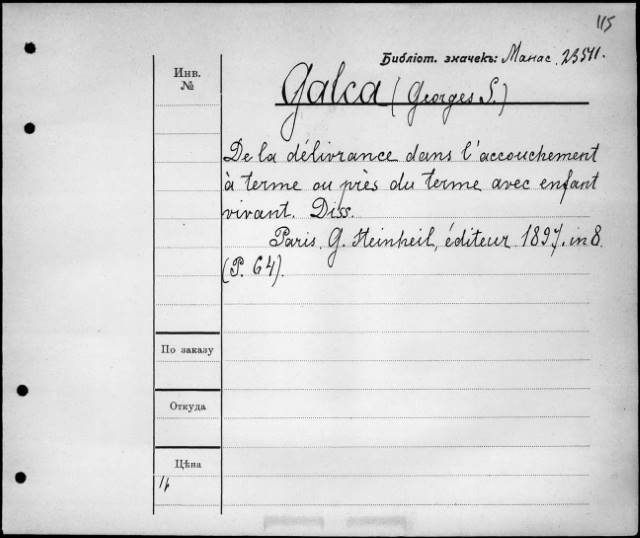 115
Библіот. значекъ: Манас. 23511.
Инв. №
Galca (Georges S.)
De la délivrance dans l'accouchement
à terme ou près du terme avec enfant
vivant. Diss.
Paris, G. Steinheil, éditeur 1897. in 8.
(P. 64).
По заказу
Откуда
Цѣна